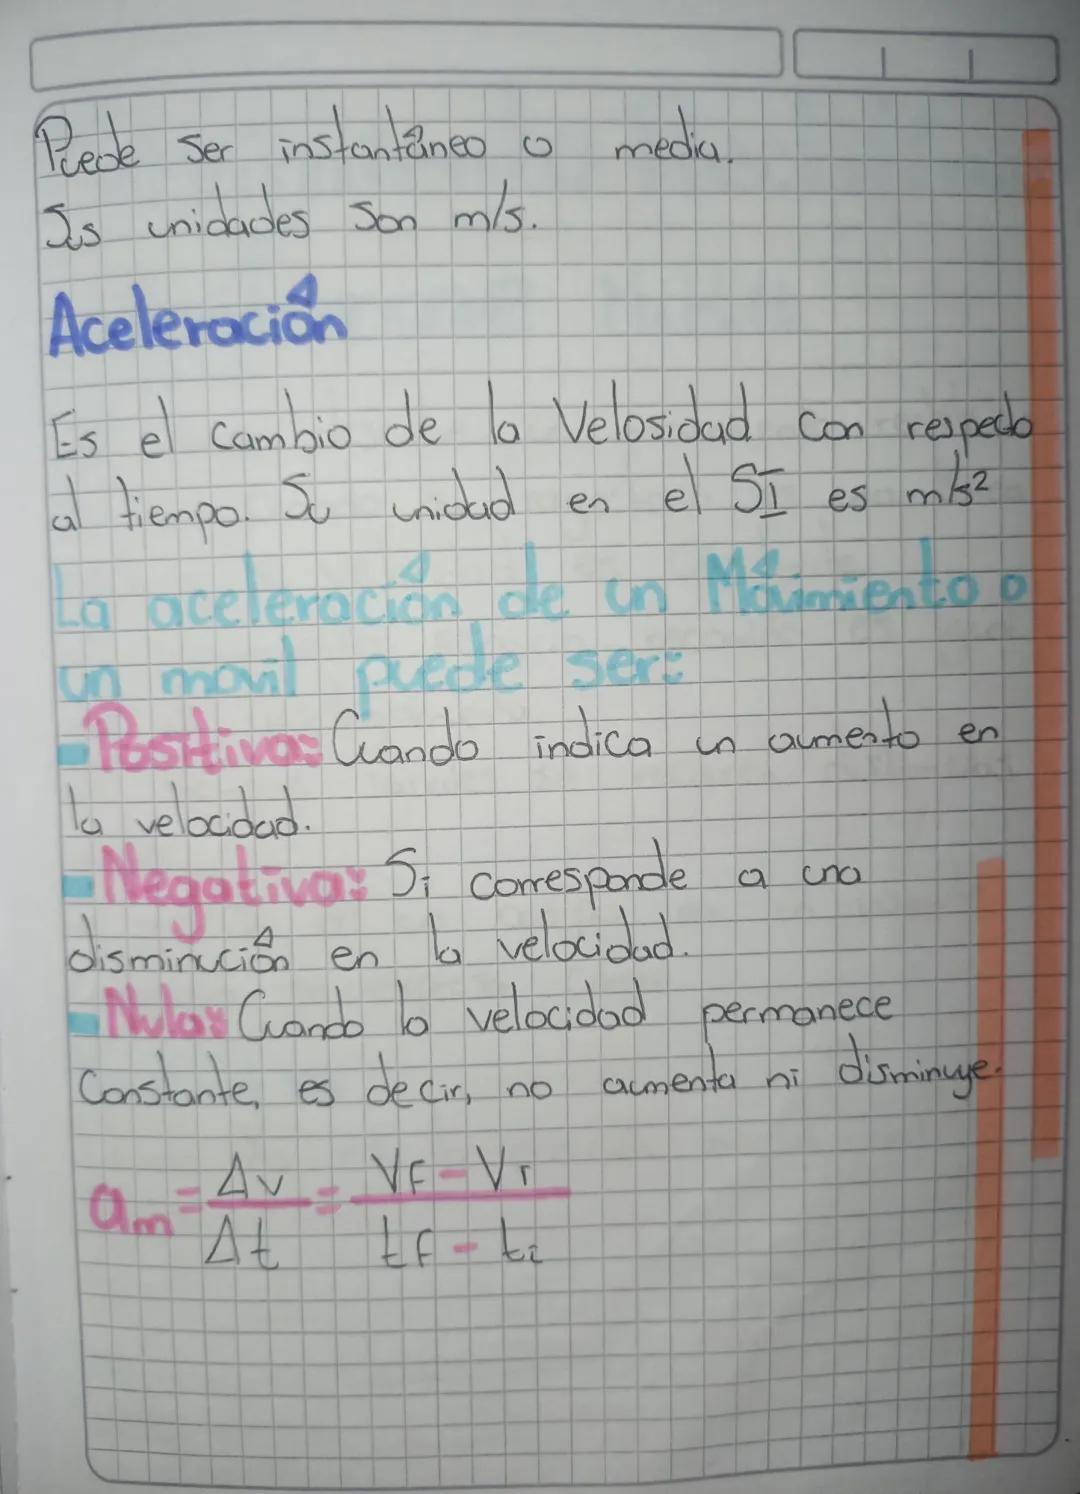 Puede ser instantáneo o media.
Sus unidades son m/s.
Aceleración
Es el cambio de la Velosidad con respecto
al tiempo. Su unidad en el SI es m/s²
La aceleración de un Movimiento o
un movil puede ser:
-Positiva: Cuando indica un aumento en
la velocidad.
-Negativa: Si corresponde a una
disminución en la velocidad.
-Nula: Cuando la velocidad permanece
Constante, es decir, no aumenta ni disminuye.
am = Δv/Δt = VF - VI / tF - ti